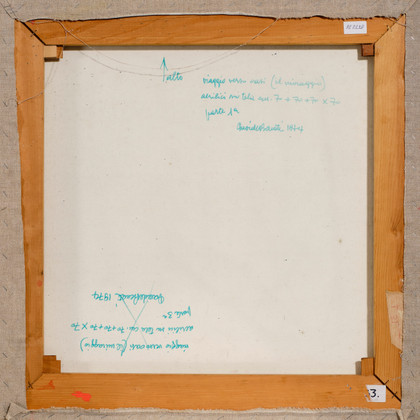 alto
viaggio verso oasi (il miraggio)
acrilici su tela cm. 70 + 70 + 70 x 70
parte 1ª
1974
viaggio verso oasi (il miraggio)
acrilici su tela cm. 70 + 70 + 70 x 70
parte 3ª
1974
3.